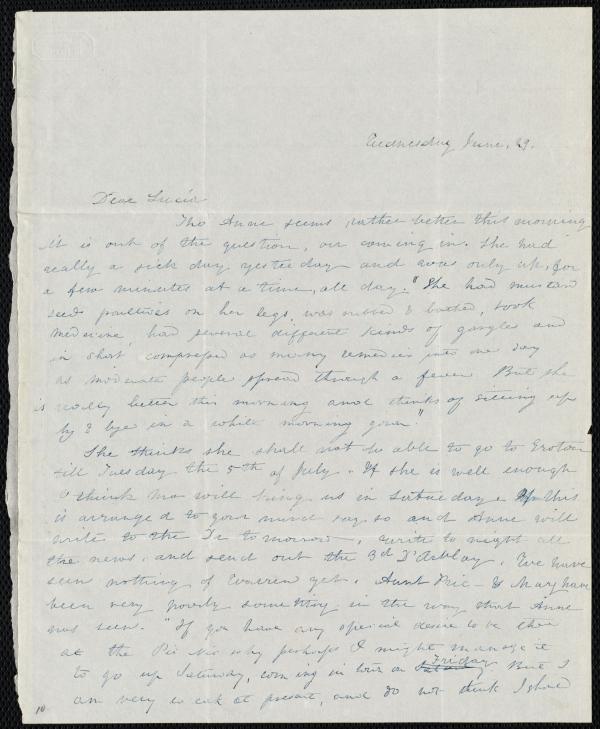 Wednesday June, 29.
Dear Lucia
Tho Anne seems rather better this morning
it is out of the question, our coming in. She had
really a sick day yesterday and was only up, for
a few minutes at a time, all day. "She had mustard
seed poultices on her legs, was rubbed & bathed, took
medicine, had several different kinds of gargles and
in short compressed as many remedies into one day
as moderate people spread through a fever. But she
is really better this morning and thinks of sitting up
by & bye in a white morning gown."
She thinks she shall not be able to go to Groton
till Tuesday the 5th of July. If she is well enough
I think Ma will bring us in Saturday. If this
is arranged to your mind say so and Anne will
write to the to morrow, write to night all
the news, and send out the 3d D'Arblay. We have
seen nothing of Warren yet. Aunt & Mary have
been very poorly something in the way that Anne
has been. "If you have any special desire to be there
at the Pic Nic why perhaps I might manage it
to go up Saturday, coming in town on Friday But I
am very weak at present, and do not think I shall